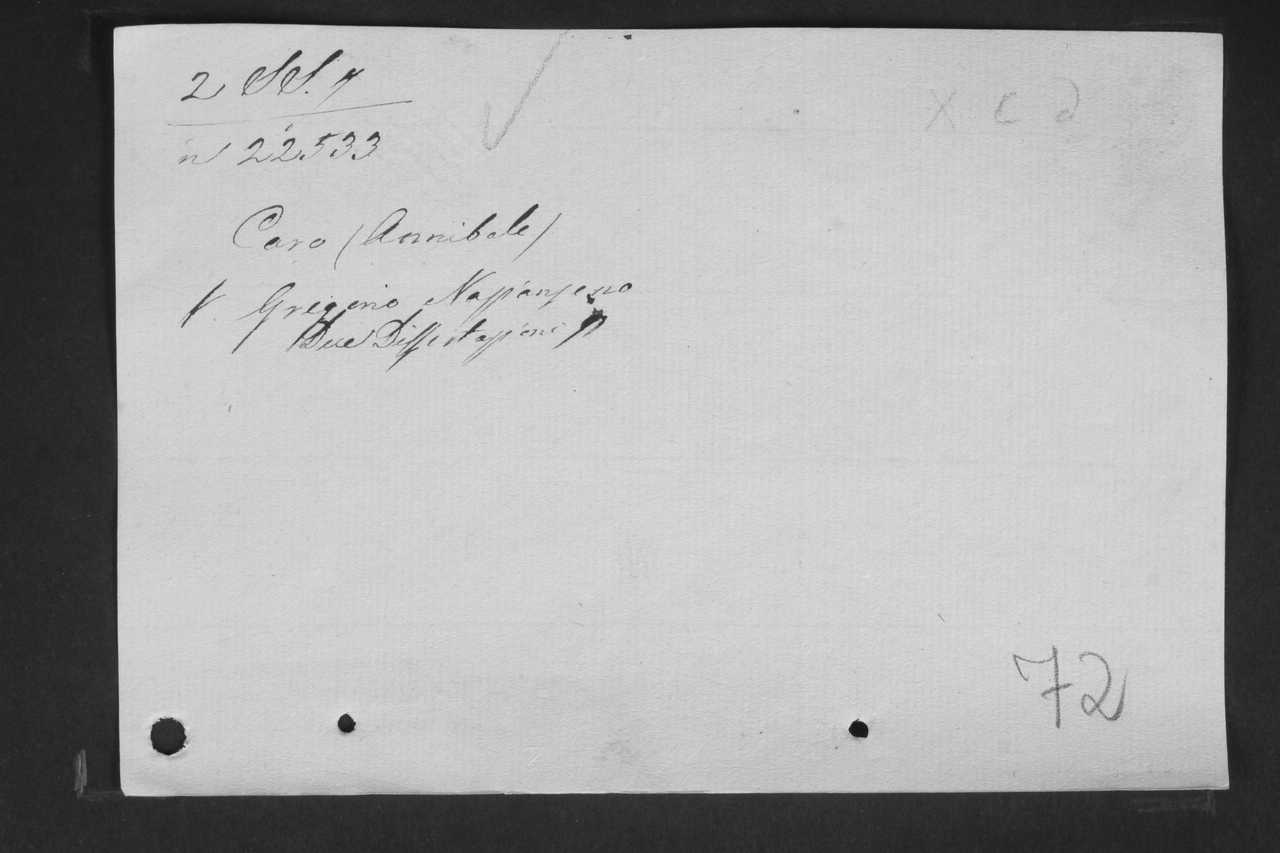 2 SS. 7
X C d
n 22533
Caro (Annibale)
V. Gregorio Nazianzeno
Due Dissertazioni
72